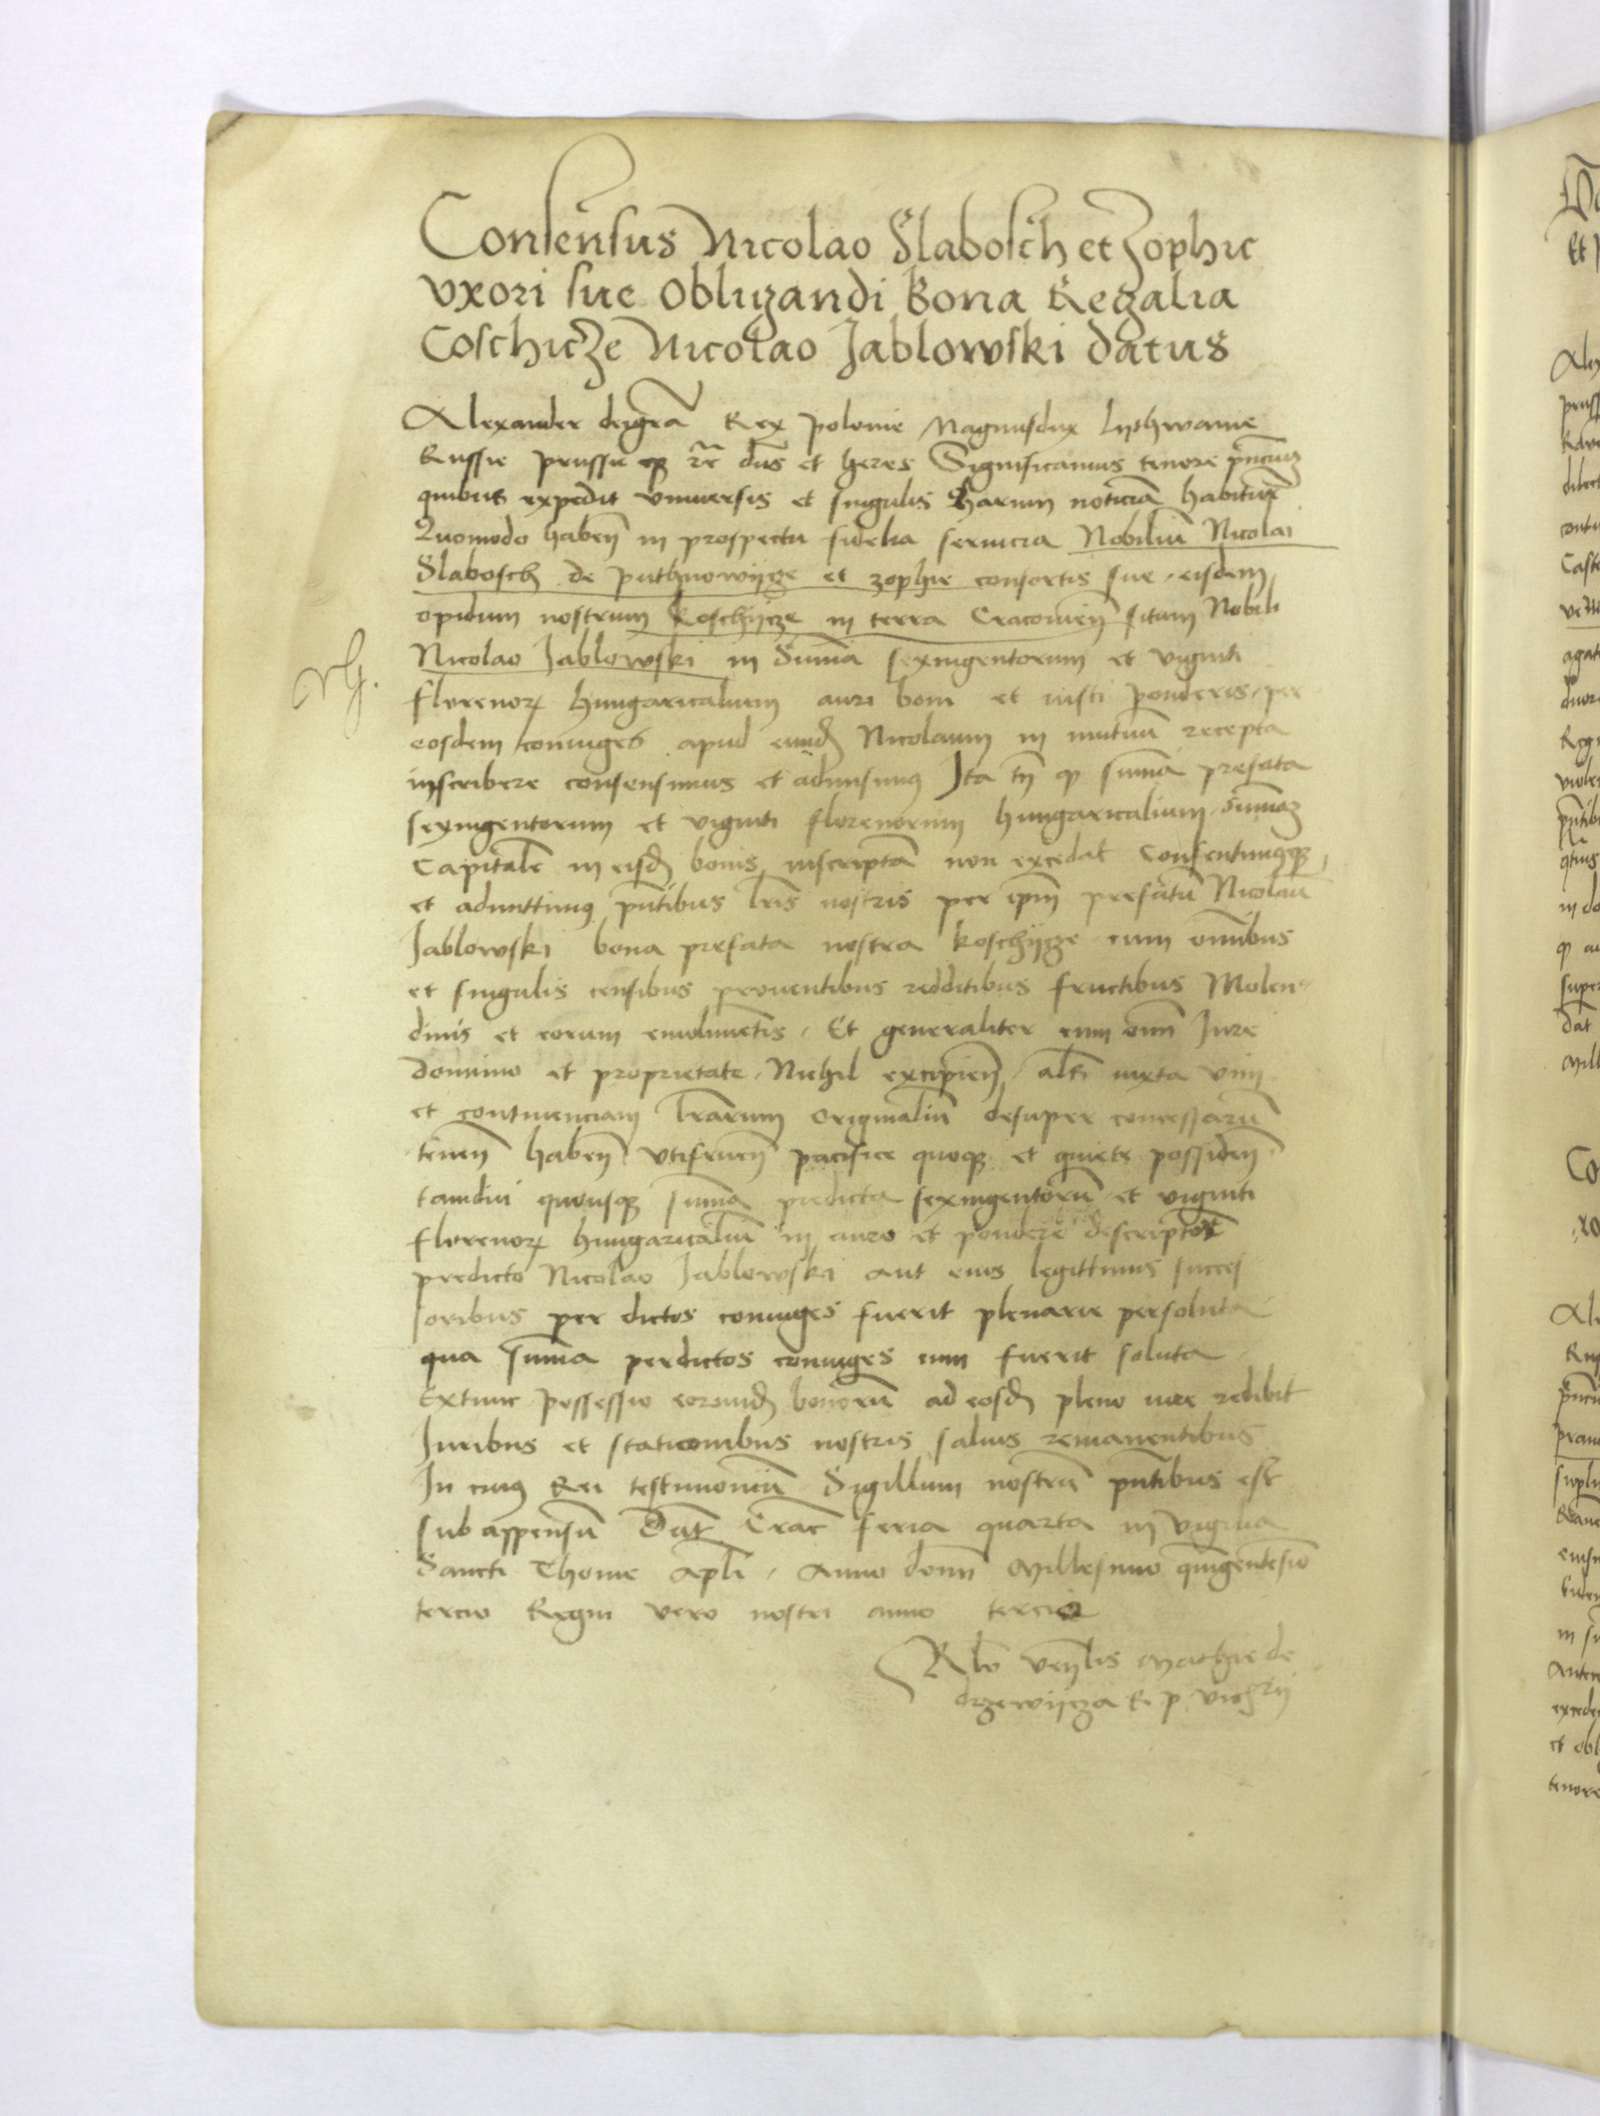 Consensus Nicolao Slabosch et Zophie
vxori sue Obligandi Bona Regalia
Coschicze Nicolao Jablowski datus
Alexander dei grā Rex polonie Magnusdux Lythwanie
Russie prussie qꝫ rc̄ dn̄s et heres Significamus tenore pn̄ciuꝫ
quibus expedit vniuersis et singulis harum noticiā habitur̄
Quomodo haben̄ in prospectu fidelia seruicia Nobiliū Nicolai
Slabosch de puthnowijcze et zophie consortis sue eisdem
opidum nostrum Koschijcze in terra Cracouien̄ situm Nobili
Nicolao Jablowski in Sum̄a sexingentorum et viginti
florenoꝝ hungaricalium auri boni et iusti ponderis per
eosdem coniuges apud eund̄ Nicolaum in mutuū recepta
inscribere consensimus et admisimꝰ Ita tn̄ qꝫ sum̄a prefata
sexingentorum et viginti florenorum hungaricalium Sum̄aꝫ
Capitalē in eisd̄ bonis inscriptā non excedat Consentimꝰqꝫ
et admittimꝰ pn̄tibus lr̄is nostris per ip̄m prefatū Nicolaū
Jablowski bona prefata nostra koschijcze cum om̄ibus
et singulis censibus prouentibus redditibus fructibus Molen
dinis et eorum emolimētis Et generaliter cum om̄i Jure
dominio et proprietate Nichil excipien̄ al̄s iuxta vim
et continenciam lr̄arum originaliū desuper concessarū
tenen̄ haben̄ vtifruen̄ pacifice quoqꝫ et quiete possiden̄
tamdiu quousqꝫ sum̄a predicta sexingentorū et viginti
florenoꝝ hungaricaliū in auro et pondere descriptoꝝ
predicto Nicolao Jablowski aut eius legittimis succes
soribus per dictos coniuges fuerit plenarie persoluta
qua sum̄a perdictos coniuges cum fuerit soluta
Extunc possessio eorund̄ bonorū ad eosd̄ pleno iure redibit
Juribus et stacionibus nostris saluis remanentibus
In cuiꝰ Rei testimoniū Sigillum nostrū pn̄tibus est
sub appensū Dat̄ Crac̄ feria quarta in vigilia
Sancti Thome apl̄i Anno domī Millesimo quīgentesīo
tercio Regni vero nostri anno tercio
Rlō ven̄lis Mathie de
drzewijcza R p vice